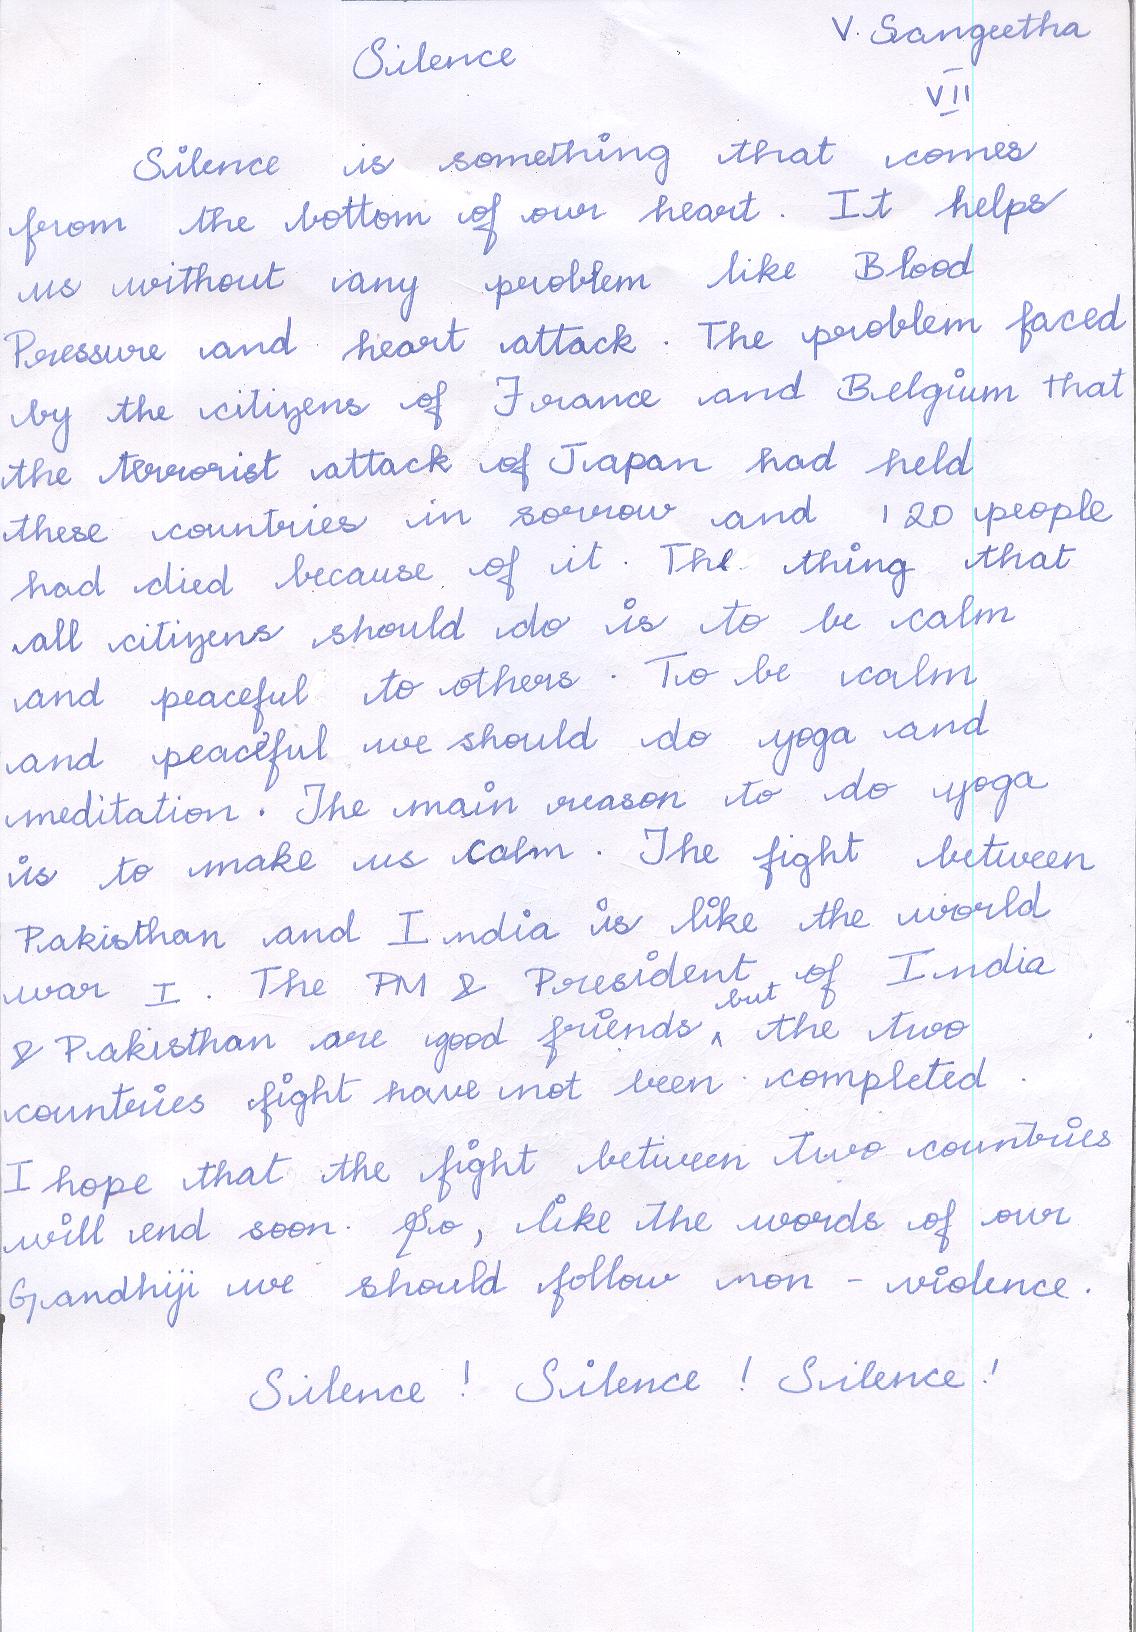 V. Sangeetha
Silence
VII
Silence is something that comes
from the bottom of our heart. It helps
us without any problem like Blood
Pressure and heart attack. The problem faced
by the citizens of France and Belgium that
the terrorist attack of Japan had held
these countries in sorrow and 120 people
had died because of it. The thing that
all citizens should do is to be calm
and peaceful to others. To be calm
and peaceful we should do yoga and
meditation. The main reason to do yoga
is to make us calm. The fight between
Pakisthan and India is like the world
war I. The PM & President of India
& Pakisthan are good friends, but the two
countries fight have not been completed.
I hope that the fight between two countries
will end soon. So, like the words of our
Gandhiji we should follow non - violence.
Silence ! Silence ! Silence !